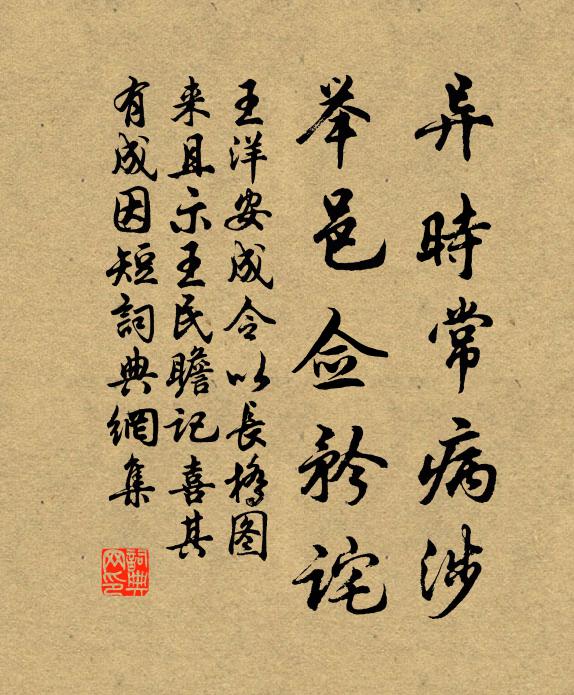 异時常病涉
举邑佥矜诧
王洋安成令以長橋图
来且示王民瞻记喜其
有成因短詞典網集
詞典网印